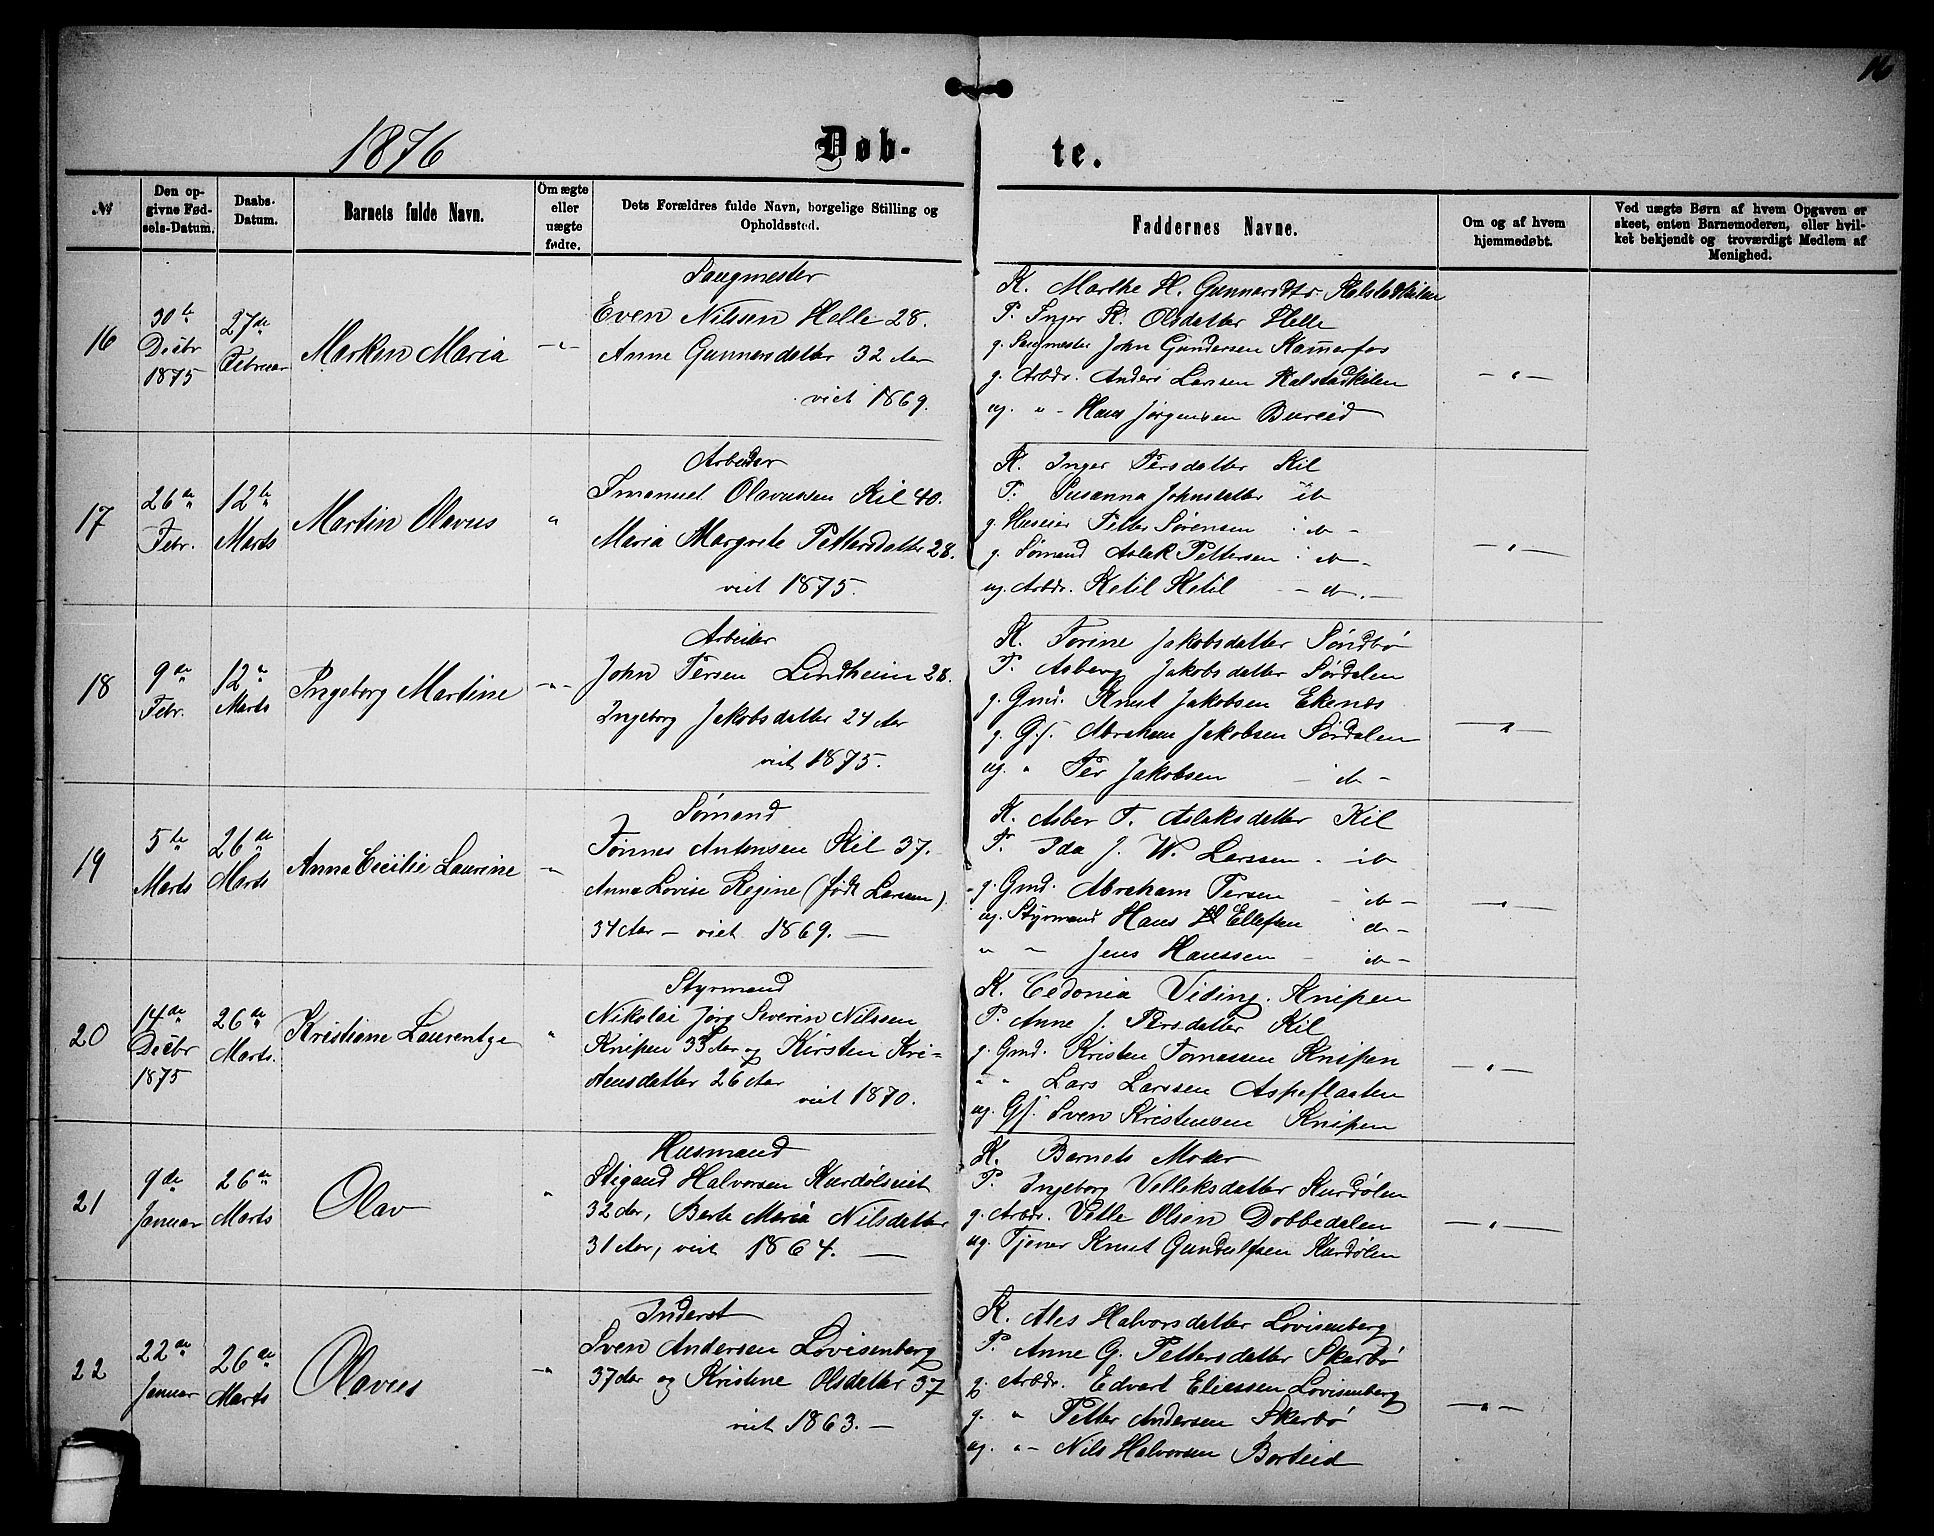 16
1876
Døb-
te.
№
Den op-
givne Fød-
sels-Datum.
Daabs-
Datum.
Barnets fulde Navn.
Om ægte
eller
uægte
fødre.
Dets Forældres fulde Navn, borgelige Stilling og
Opholdssted.
Faddernes Navne.
Om og af hvem
hjemmedøbt.
Ved uægte Børn af hvem Opgaven er
skeet, enten Barnemoderen, eller hvil-
ket bekjendt og troværdigt Medlem af
Menighed.
16
30te
Decbr
1875
27de
Februar
Marken Maria
-"-
Saugmester
Even Nilssen Helle 28.
Anne Gunnarsdatter 32 Aar
viet 1869.
K. Marthe H. Gunnarsdtr. Kalstadkilen
P. Inger K. Olsdatter Helle
g. Saugmester John Gundersen Kammerfos
g. Arbdr. Anders Larssen Kalstadkilen
ug. " - Hans Jørgensen Bureid
-"-
17
26de
Febr.
12te
Marts
Martin Olavus
"
Arbeider
Imanuel Olavussen Kil 40.
Maria Margrete Pettersdatter 28.
viet 1875.
K. Inger Persdatter Kil
P. Susanna Johnsdatter ib
g. Huseier Petter Sørensen ib -
g. Sømand Aslak Pettersen ib -
ug. Arbdr. Ketil Ketil - ib -
-"-
18
9de
Febr.
12te
Marts
Ingeborg Martine
-"-
Arbeider
John Persen Lindheim 28.
Ingeborg Jakobsdatter 24 Aar
viet 1875.
K. Torine Jakobsdatter Søndbø
P. Asberg Jakobsdatter Sørdalen
g. Gmd. Knut Jakobsen Ekenes
g. Gf. Abraham Jakobsen Sørdalen
ug. " Per Jakobsen - ib -
-"-
19
5te
Marts
26de
Marts
Anna Cecilie Laurine
-"-
Sømand
Tønnes Antonsen Kil 37.
Anna Lovise Regine (født Larssen)
34 Aar - viet 1869. -
K. Asber T. Aslaksdatter Kil
P. Ida J. W. Larssen - ib
g. Gmd. Abraham Persen - ib -
ug. Styrmand Hans Ellefsen ib -
" " Jens Hanssen - ib -
-"-
20
14de
Decbr
1875
26de
Marts.
Kristiane Laurentze
"
Styrmand
Nikolai Jørg Severin Nilssen
Knipen 33 Aar og Kirsten Kri-
stensdatter 26 Aar
viet 1870.
K. Cedonia Viding. Knipen
P. Anne J. Persdatter Kil
g. Gmd. Kristen Tomassen Knipen
" " Lars Larssen Aspeflaaten
ug. Gf. Sven Kristensen Knipen
-"-
21
9de
Januar
26de
Marts
Olav
"
Husmand
Stigand Halvorsen Kurdølseiet
32 Aar, Berte Maria Nilsdatter
31 Aar, viet 1864. -
K. Barnets Moder
P. Ingeborg Velleksdatter Kurdølen
g. Arbdr. Vetle Olsen Dobbedalen
ug. Tjener Knut Gundulfsen Kurdølen
-"-
22
22de
Januar
26de
Marts
Olavus
-"
Inderst
Sven Andersen Lovisenberg
37 Aar og Kristine Olsdatter 37
viet 1863. -
K. Ales Halvorsdatter Lovisenberg
P. Anne G. Pettersdatter Skarbø
g. Arbdr. Edvart Eliassen Lovisenberg
g. " Petter Andersen Skarbø
ug. " - Nils Halvorsen Borteid
-"-